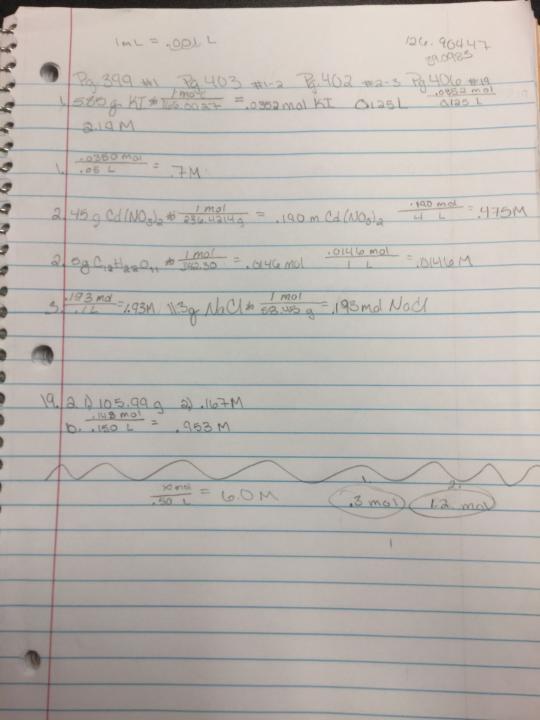 1mL = .001 L
126.90447
390983
Pg 399 #1 Pg 403 #1-2 Pg. 402 #2-3 Pg 406 #19
1. 5.85g KI * 1 mol / 166.0027 = .0352 mol KI 0.125L .0352 mol / 0.125 L
1. .0350 mol / .05 L = .7M
2. 45g Cd(NO3)2 * 1 mol / 236.4214g = .190 m Cd(NO3)2 .190 mol / .4 L = .475M
2. 5g C12H22O11 * 1 mol / 342.30 = .0146 mol .0146 mol / 1 L = .0146 M
3. .193 mol / .1 L = 1.93M 11.3g NaCl * 1 mol / g = .193 mol NaCl
19. a 1) 105.99 g 2) .167M
b. mol / .150 L = .953 M
x mol / .50 L = 6.0 M
1. .3 mol
2. 1.2 mol